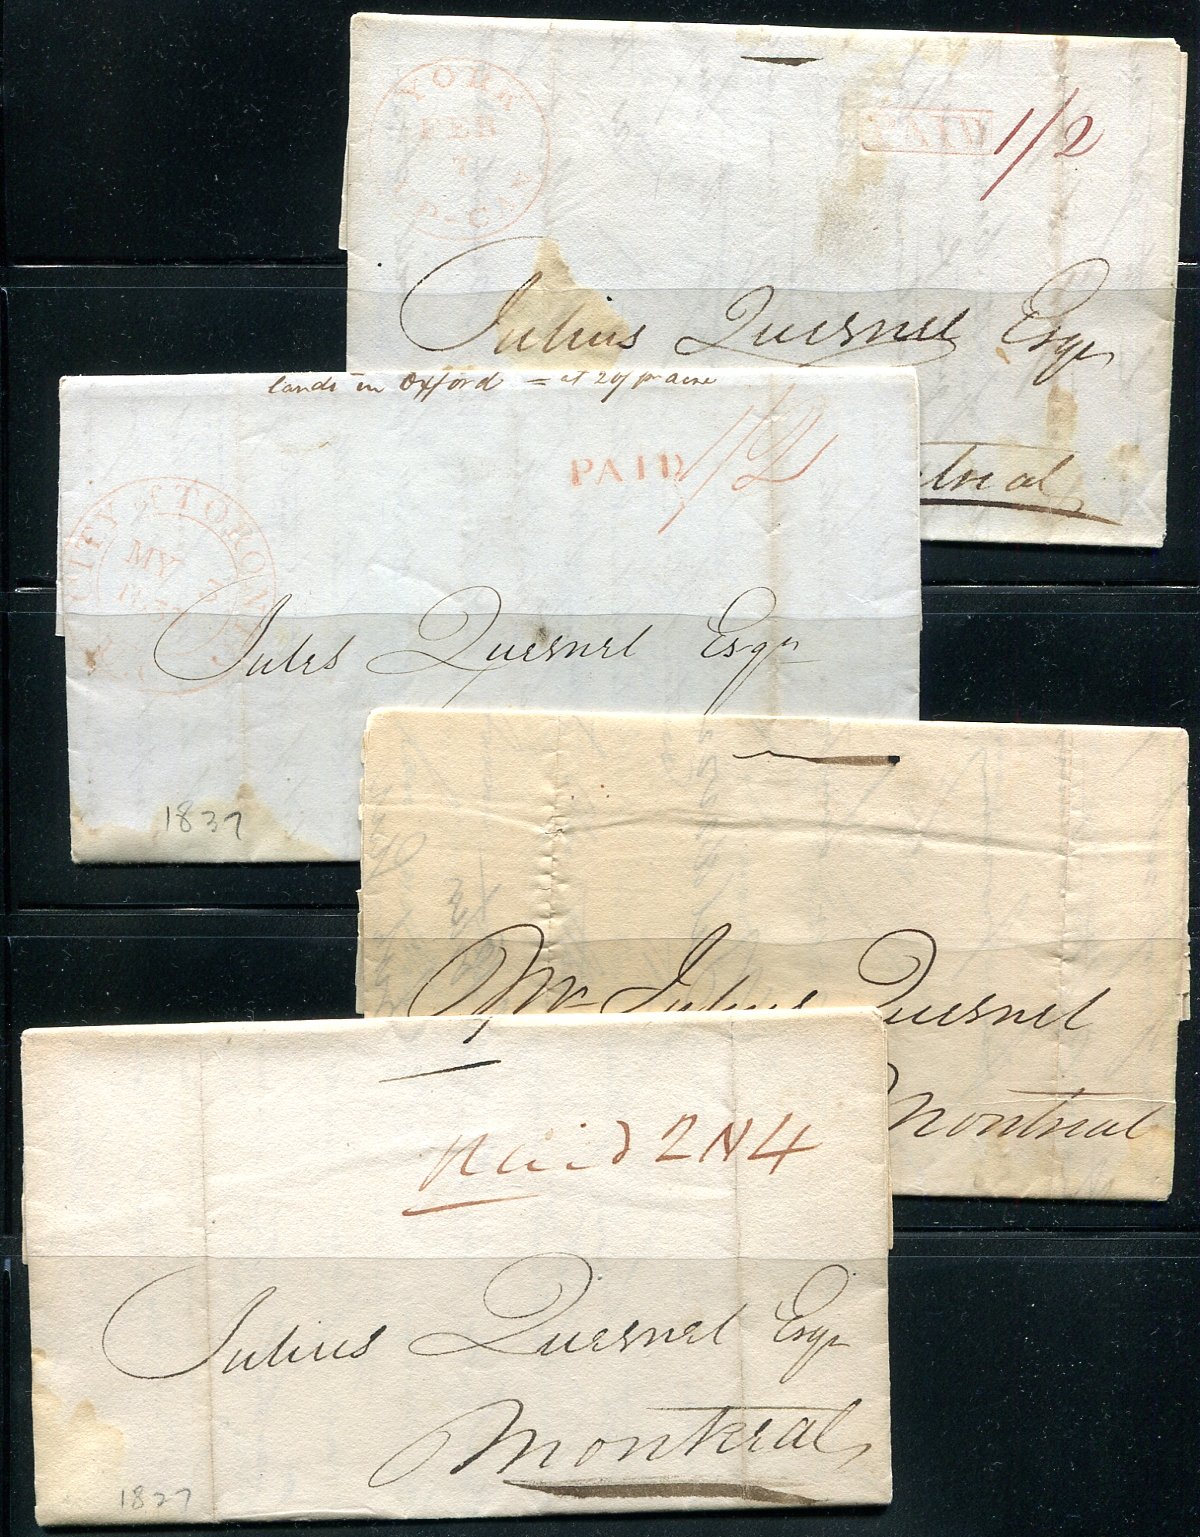 YORK
7
PAID 1/2
Julius Quesnel Esqr
lands in Oxford = at 20/ pr acre
PAID 1/2
CITY of TORONTO
MY
Jules Quesnel Esqr
1837
Mr Julius Quesnel
Montreal
Paid 2N4
Julius Quesnel Esqr
Montreal
1827